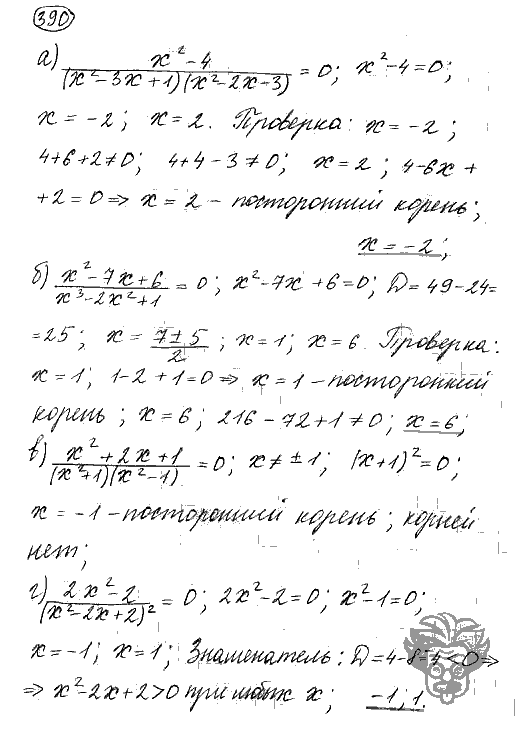 390
а) (x² - 4)/((x² - 3x + 1)(x² - 2x - 3)) = 0; x² - 4 = 0;
x = -2; x = 2. Проверка: x = -2;
4 + 6 + 2 ≠ 0; 4 + 4 - 3 ≠ 0; x = 2; 4 - 6x +
+ 2 = 0 ⇒ x = 2 - посторонний корень;
x = -2;
б) (x² - 7x + 6)/(x³ - 2x² + 1) = 0; x² - 7x + 6 = 0; D = 49 - 24 =
= 25; x = (7 ± 5)/2; x = 1; x = 6. Проверка:
x = 1; 1 - 2 + 1 = 0 ⇒ x = 1 - посторонний
корень; x = 6; 216 - 72 + 1 ≠ 0; x = 6;
в) (x² + 2x + 1)/((x² + 1)(x² - 1)) = 0; x ≠ ± 1; (x + 1)² = 0;
x = -1 - посторонний корень; корней
нет;
г) (2x² - 2)/(x² - 2x + 2)² = 0; 2x² - 2 = 0; x² - 1 = 0;
x = -1; x = 1; Знаменатель: D = 4 - 8 = -4 < 0 ⇒
⇒ x² - 2x + 2 > 0 при любых x; -1; 1.